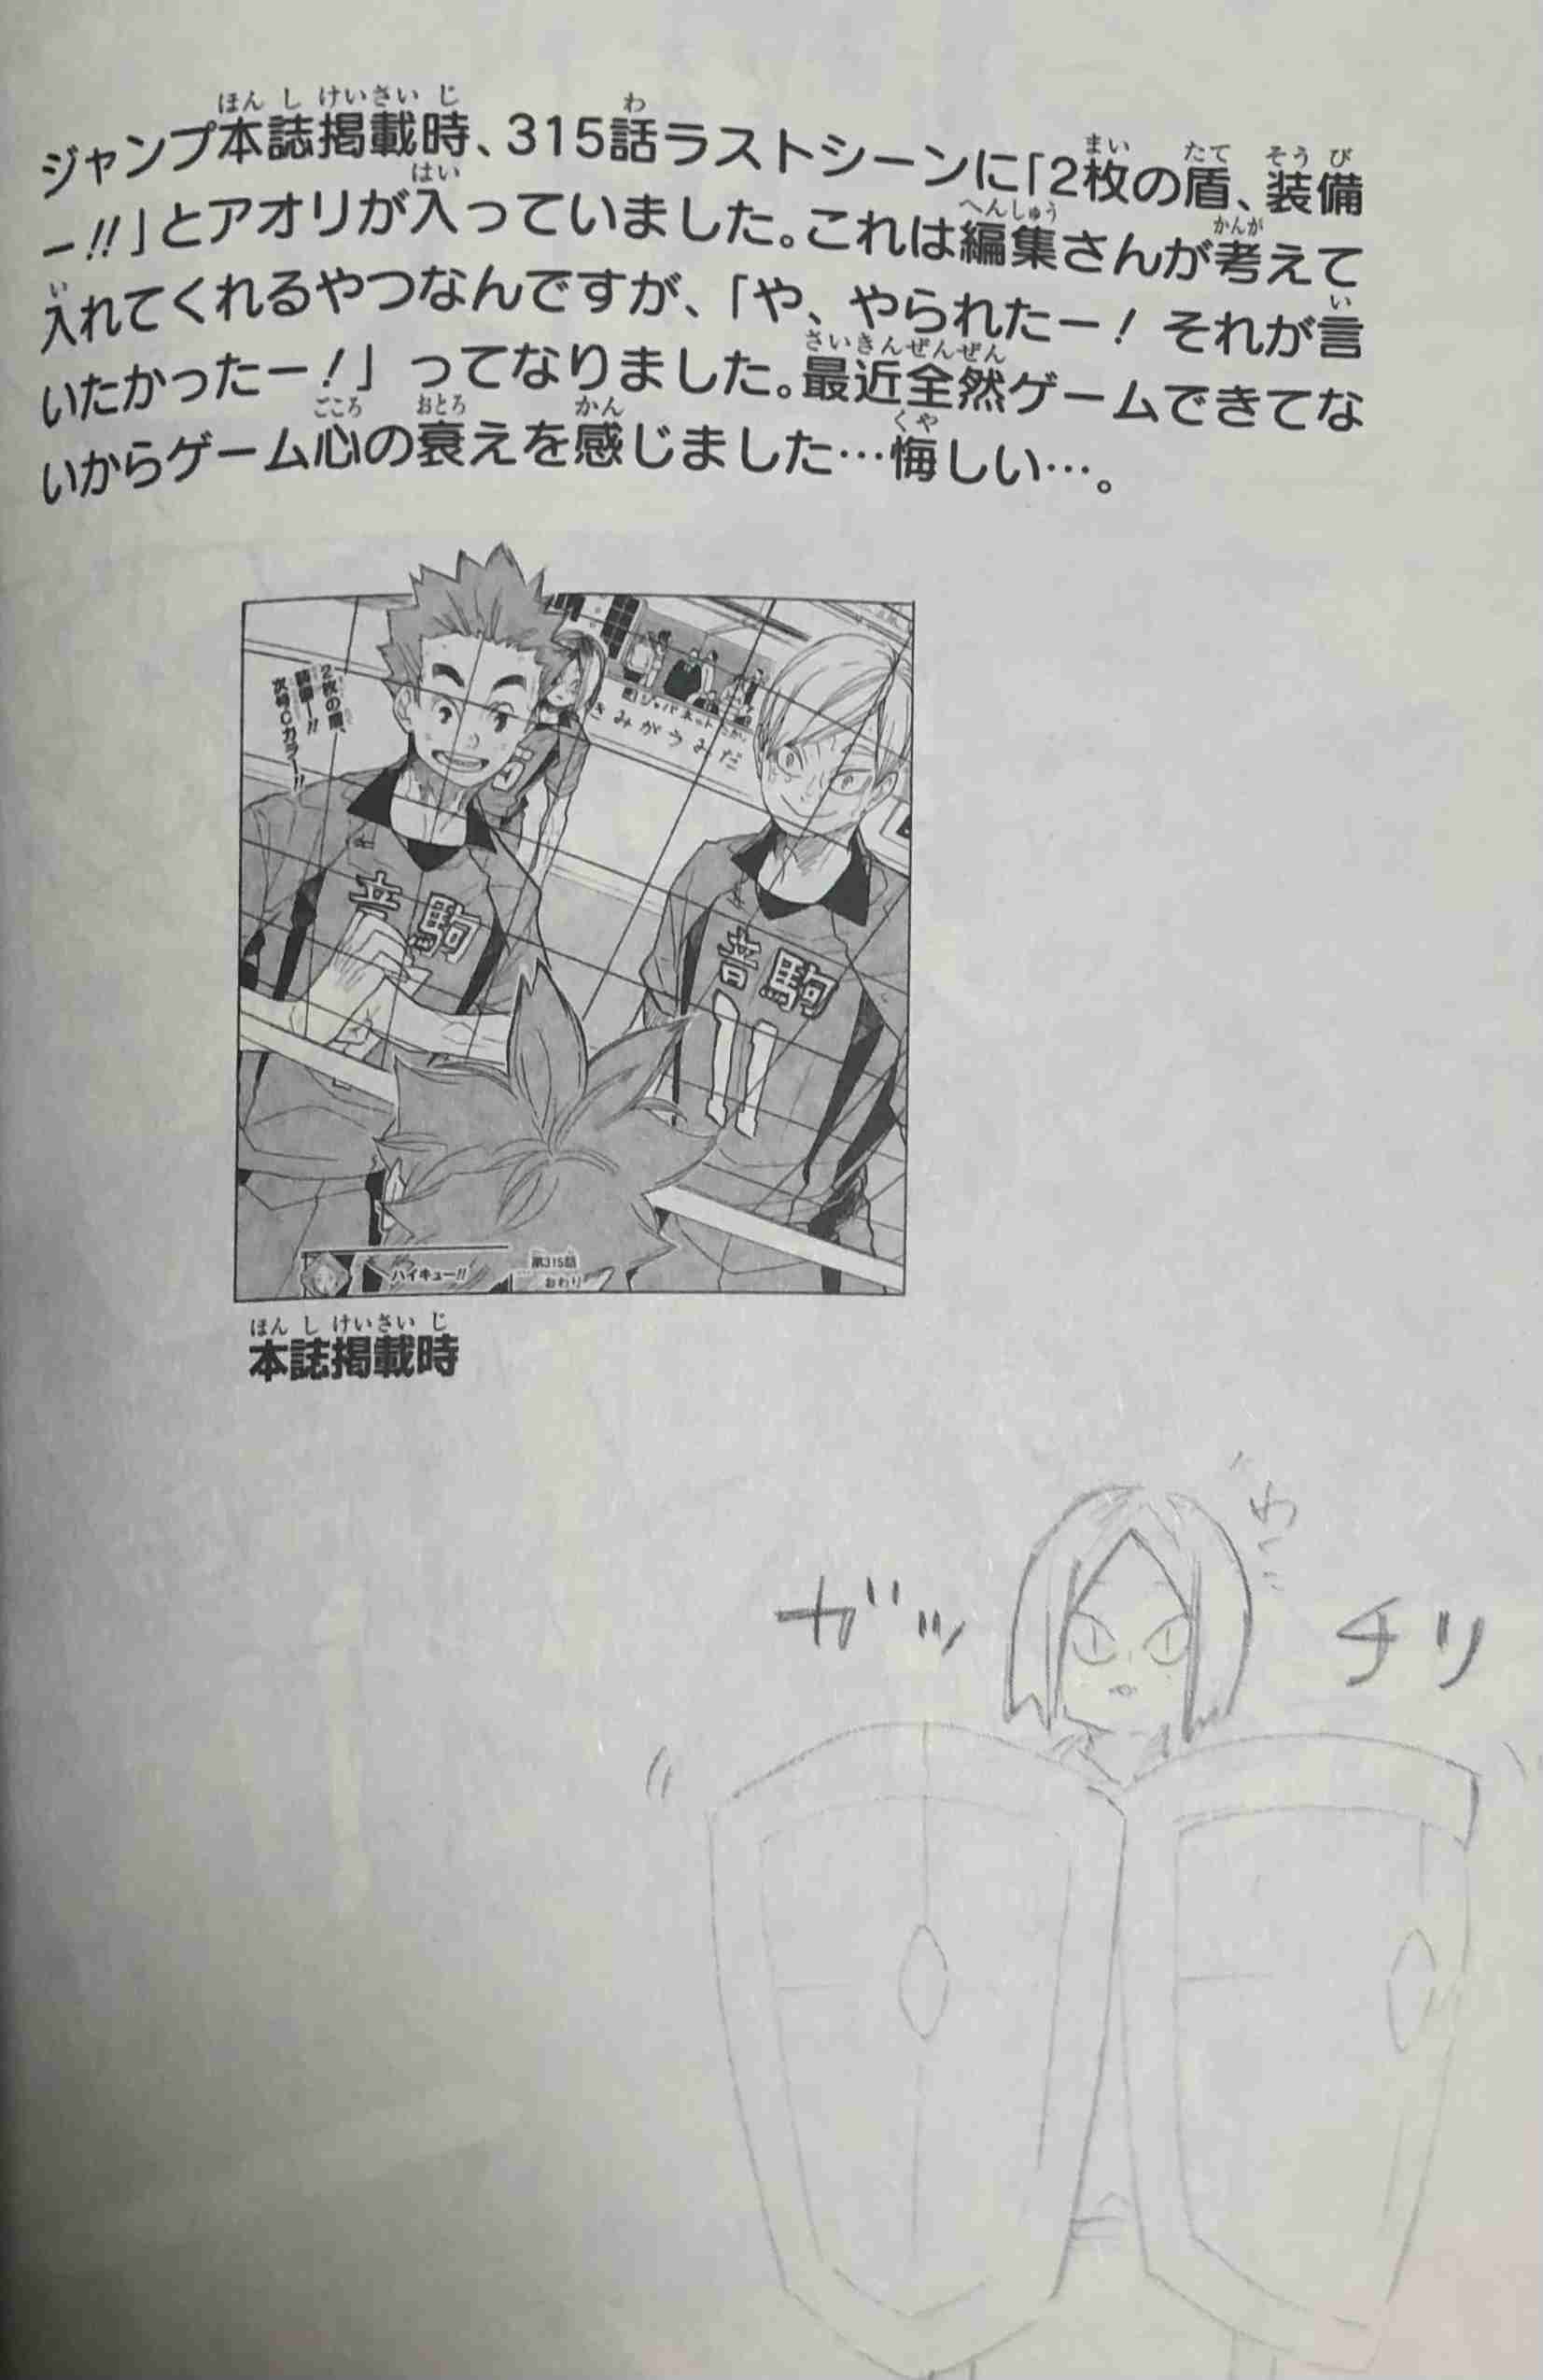 ジャンプ本誌掲載時、315話ラストシーンに「2枚の盾、装備
ー!!」とアオリが入っていました。これは編集さんが考えて
入れてくれるやつなんですが、「や、やられたー！それが言
いたかったー！」ってなりました。最近全然ゲームできてな
いからゲーム心の衰えを感じました…悔しい…。
2枚の盾、
装備ー!!
次号Cカラー!!
きみがうみだ
音駒
音駒
11
ハイキュー!!
第315話
おわり
本誌掲載時
ガッ
チリ